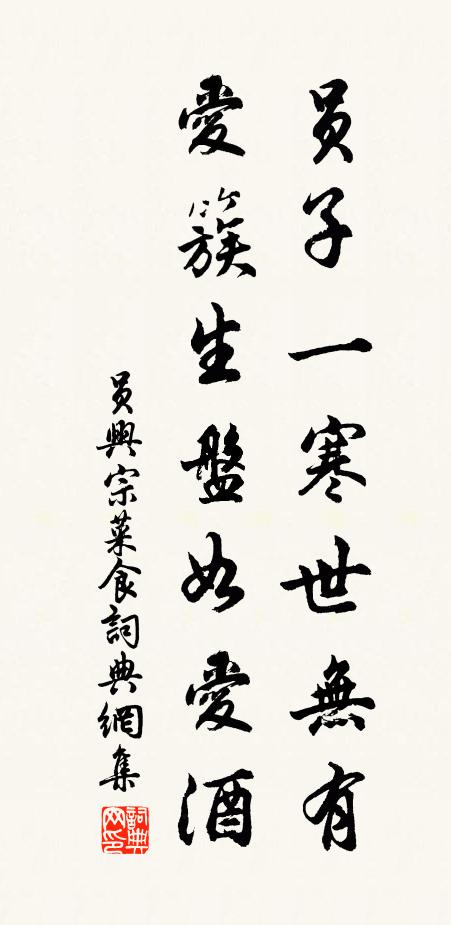 員子一寒世無有
愛簇生盤如愛酒
員興宗菜食詞典網集
詞典網印